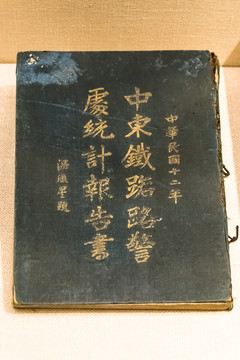 中華民國十二年
中東鐵路路警
處統計報告書
溫題